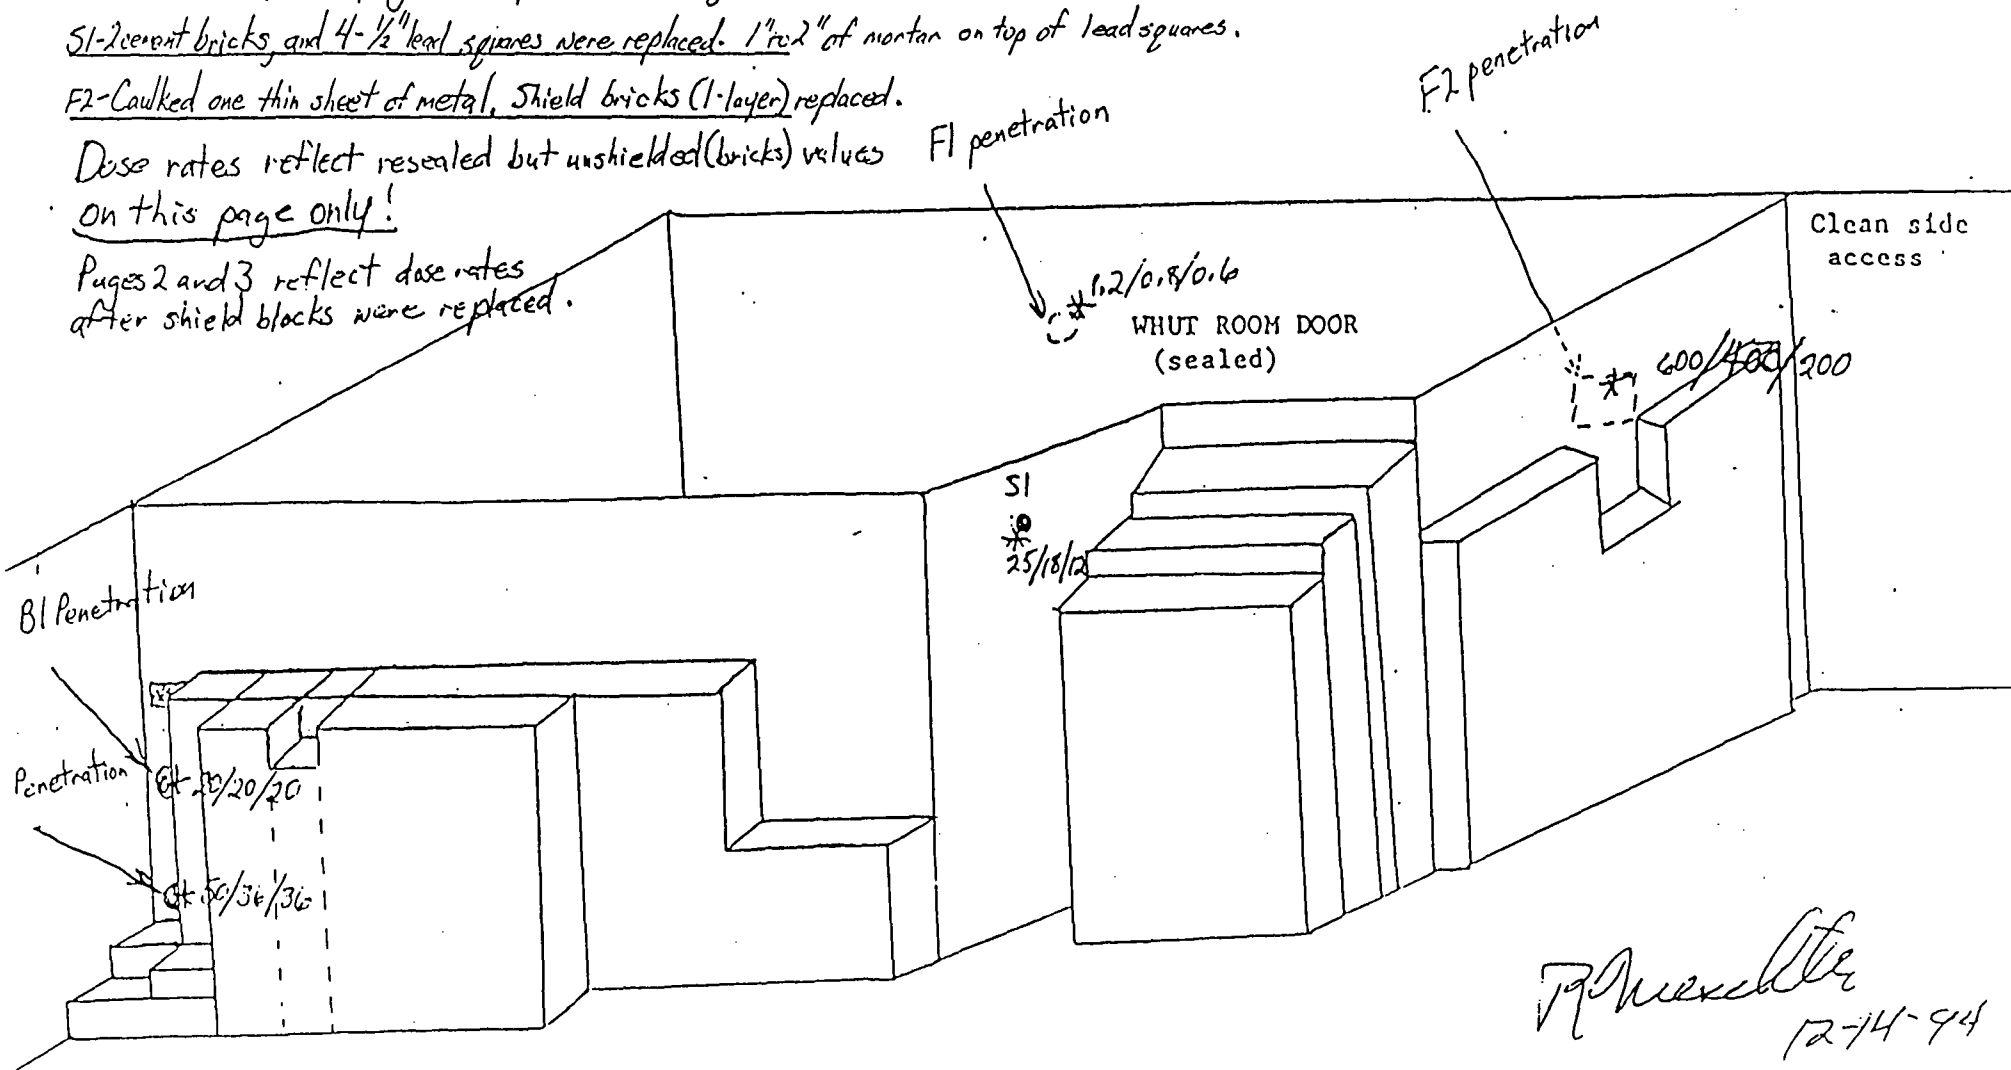 S1-2cement bricks, and 4-½" lead squares were replaced. 1" to 2" of mortar on top of lead squares.
F2-Caulked one thin sheet of metal, Shield bricks (1-layer) replaced.
Dose rates reflect resealed but unshielded (bricks) values
on this page only!
Pages 2 and 3 reflect dose rates
after shield blocks were replaced.
F1 penetration
F2 penetration
Clean side
access
1.2/0.8/0.6
WHUT ROOM DOOR
(sealed)
600/400/200
S1
25/18/12
B1 Penetration
Penetration
20/20/20
50/36/36
12-14-94